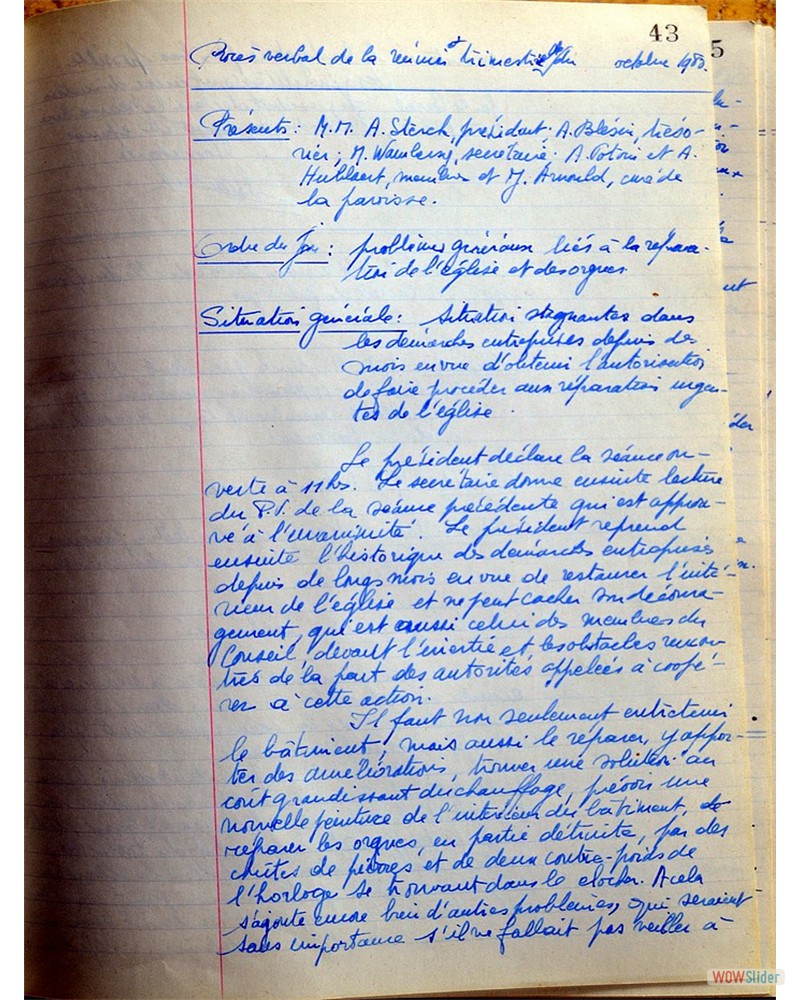 43
5
Procès verbal de la réunion trimestrielle du octobre 1980.
Présents : M.M. A. Sterck, président. A. Blésin, tréso-
rier ; M. secrétaire. A. Potoms et A.
Hublaert, membres et M. Arnould, curé de
la paroisse.
Ordre du Jour : problèmes généraux liés à la répara-
tion de l'église et des orgues
Situation générale : Situation stagnantes dans
les démarches entreprises depuis des
mois en vue d'obtenir l'autorisation
de faire procéder aux réparation urgen-
tes de l'église.
Le président déclare la séance ou-
verte à 11 hs. Le secrétaire donne ensuite lecture
du P.V. de la séance précédente qui est approu-
vé à l'unanimité. Le président reprend
ensuite l'historique des démarches entreprises
depuis de longs mois en vue de restaurer l'inté-
rieur de l'église et ne peut cacher son découra-
gement, qui est aussi celui des membres du
Conseil, devant l'inertie et les obstacles rencon-
trés de la part des autorités appelées à coopé-
rer à cette action.
Il faut non seulement entretenir
le bâtiment, mais aussi le réparer, y appor-
ter des améliorations, trouver une solution au
coût grandissant du chauffage, prévoir une
nouvelle peinture de l'intérieur du bâtiment, de
réparer les orgues, en partie détruite, par des
chutes de pierres et de deux contre-poids de
l'horloge se trouvant dans le clocher. A cela
s'ajoute encore bien d'autres problèmes, qui seraient
sans importance s'il ne fallait pas veiller à
WOWSlider